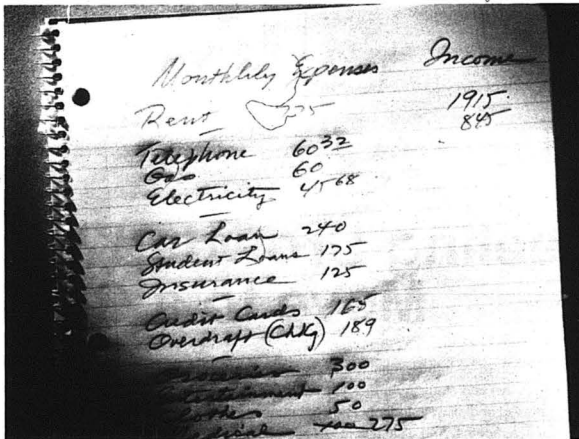 Monthly Expenses Income
Rent 1915
845
Telephone 60 32
Gas 60
Electricity 45 68
Car Loan 240
Student Loans 175
Insurance 125
Credit Cards 165
Overdraft (Chkg) 189
300
Entertainment 100
Clothes 50
Medical 275